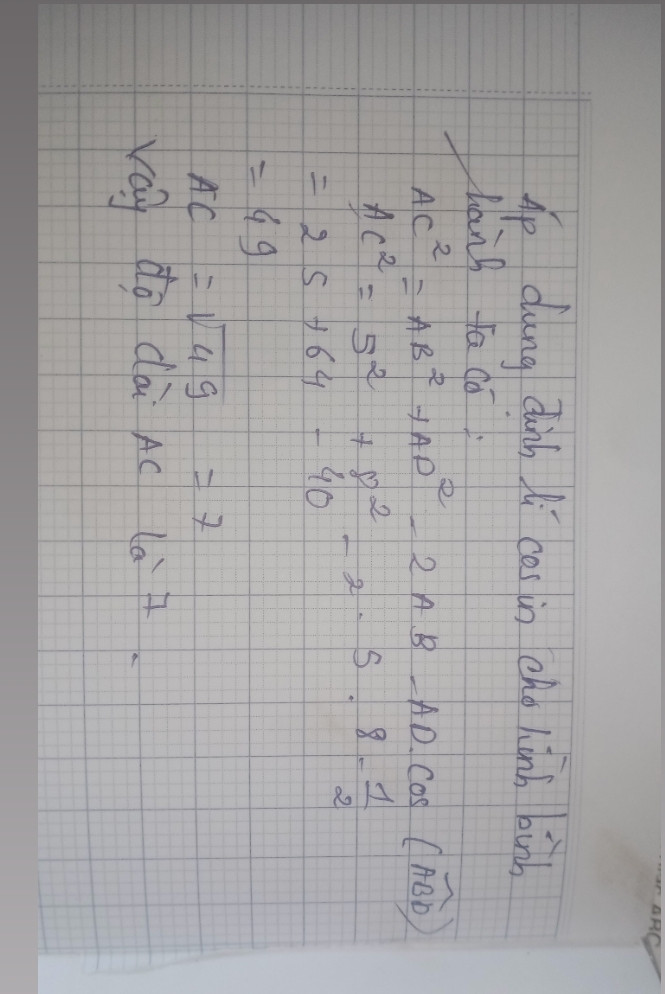 Áp dụng định lí cosin cho hình bình
hành ta có :
AC² = AB² + AD² - 2 AB - AD. Cos (ABD)
AC² = 5² + 8² - 2 . 5 . 8 - 1/2
= 25 + 64 - 40
= 49
AC = √49 = 7
Vậy độ dài AC là 7 .